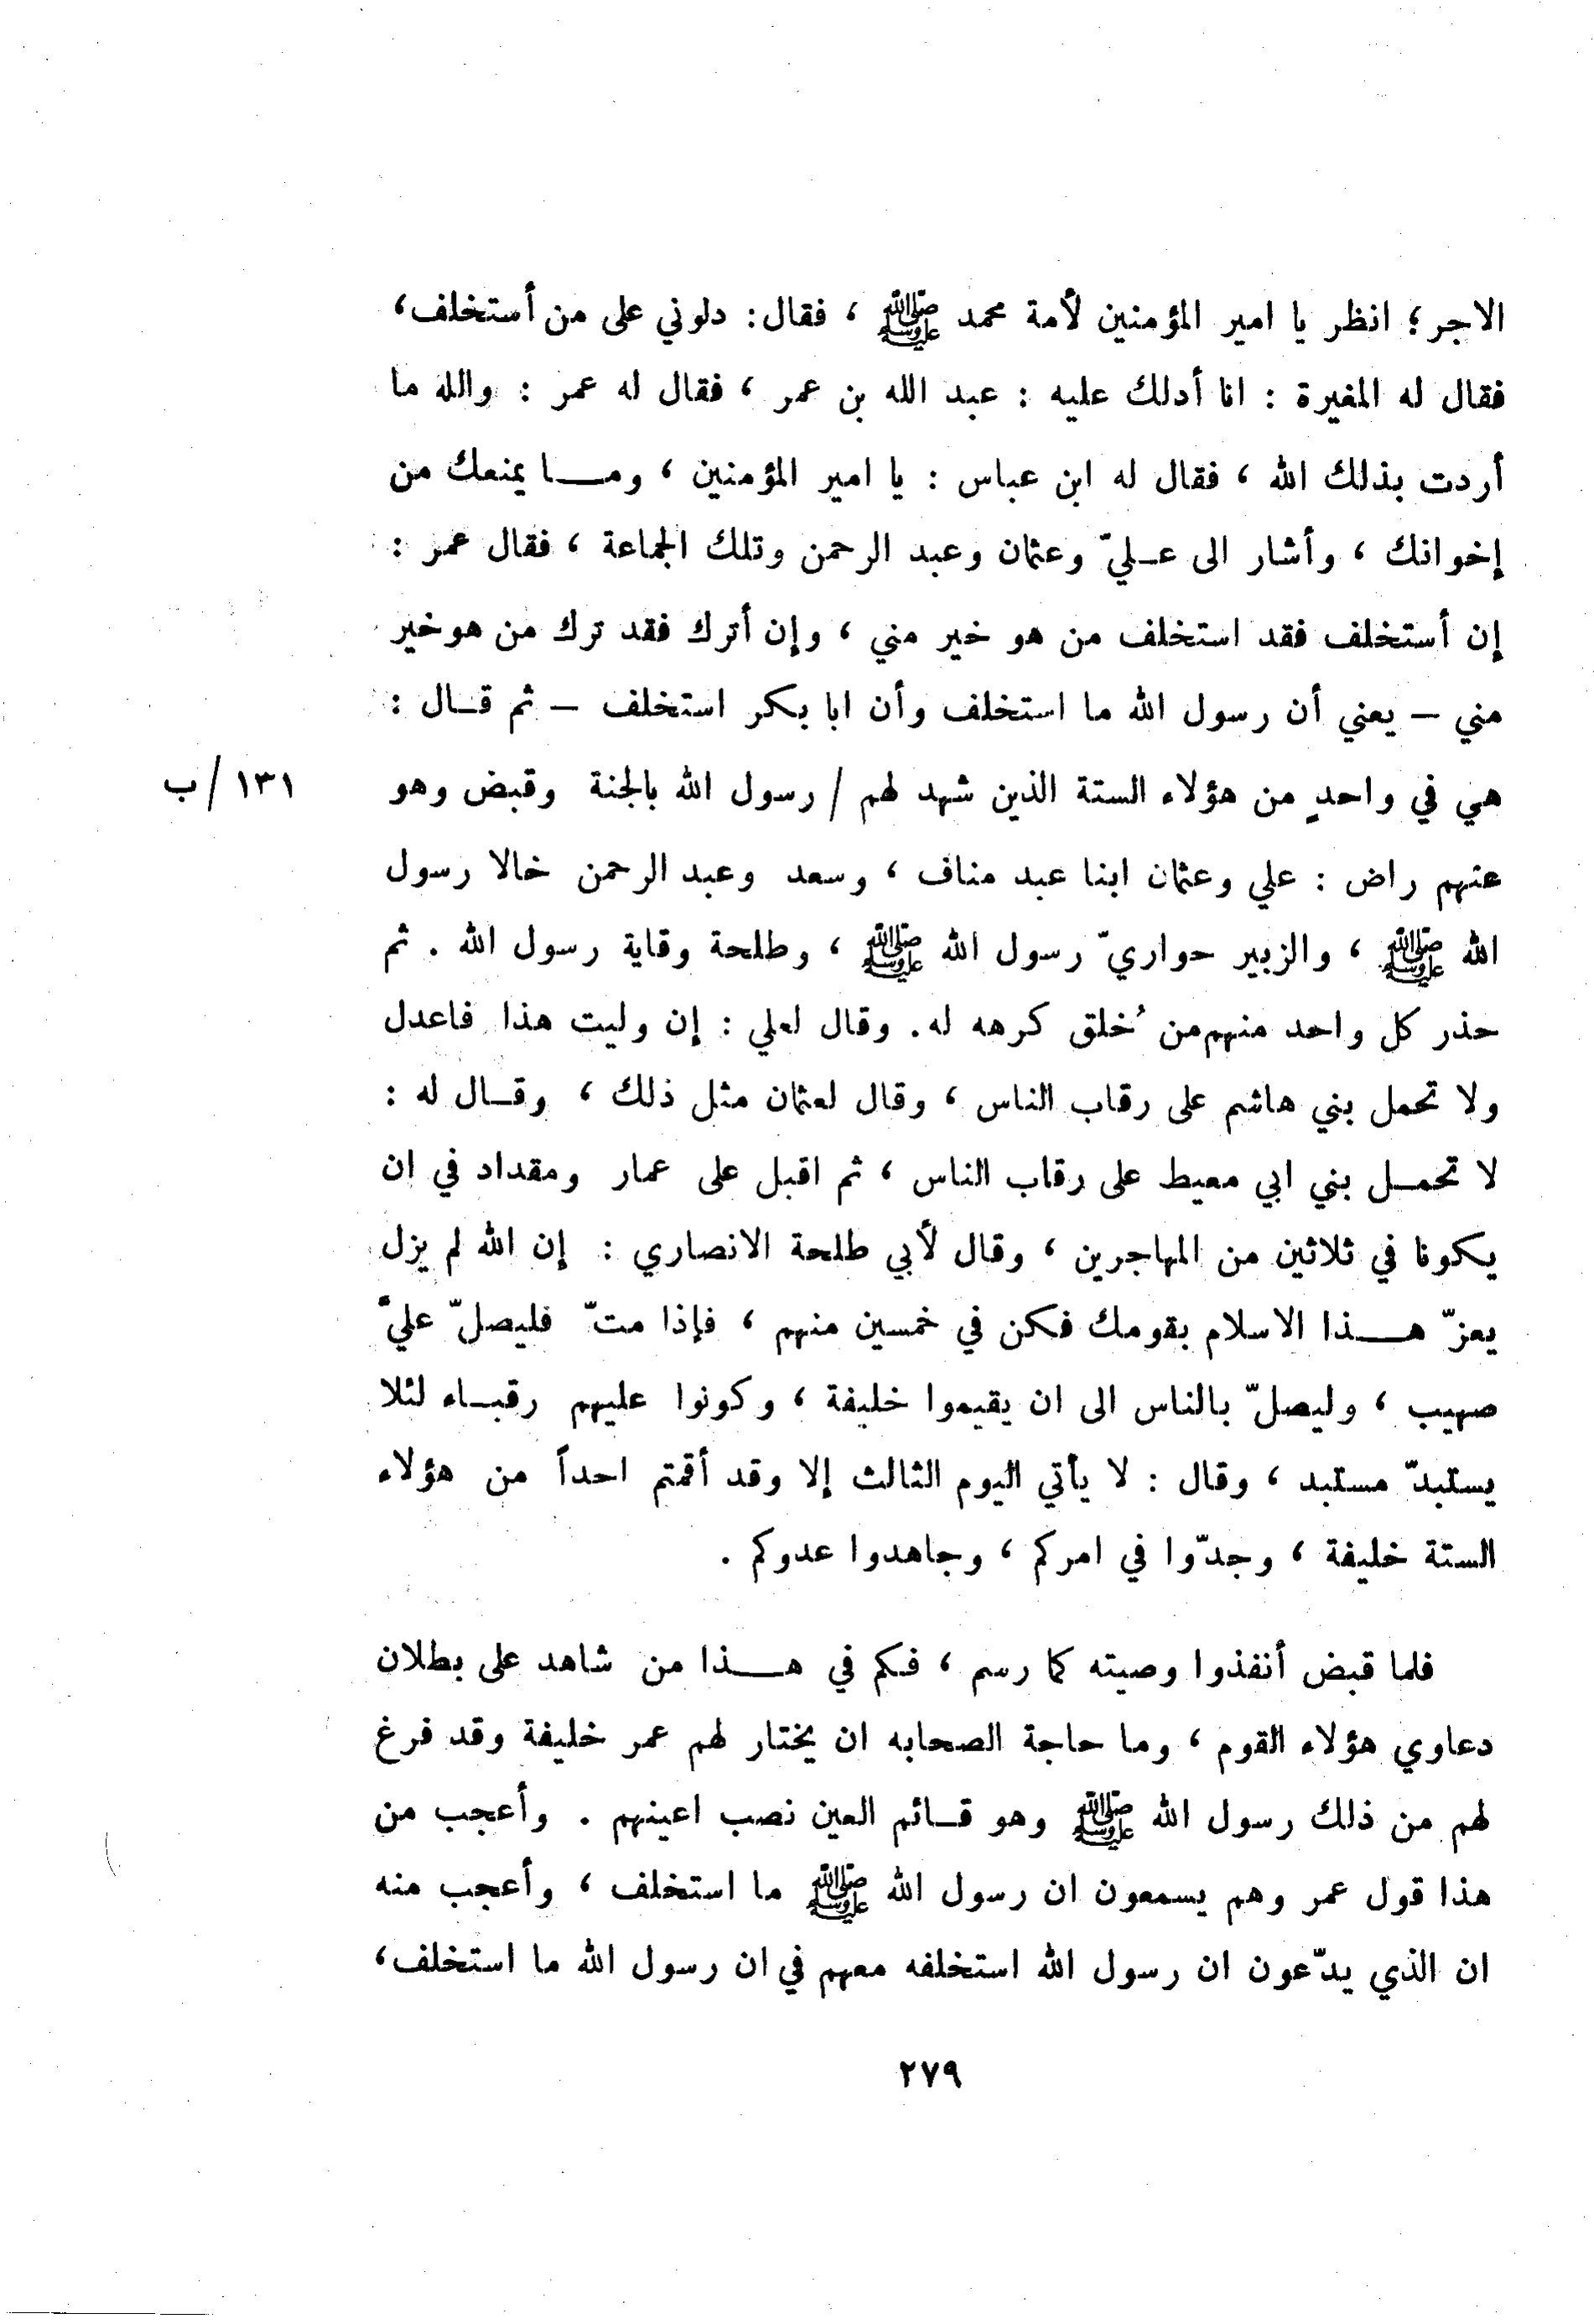 الاجر؛ انظر يا امير المؤمنين لأمة محمد ﷺ ، فقال: دلوني على من أستخلف،
فقال له المغيرة : انا أدلك عليه : عبد الله بن عمر ، فقال له عمر : والله ما
أردت بذلك الله ، فقال له ابن عباس : يا امير المؤمنين ، ومـــا يمنعك من
إخوانك ، وأشار الى عـليّ وعثمان وعبد الرحمن وتلك الجماعة ، فقال عمر :
إن أستخلف فقد استخلف من هو خير مني ، وإن أترك فقد ترك من هو خير
مني – يعني أن رسول الله ما استخلف وأن ابا بكر استخلف – ثم قـال :
هي في واحدٍ من هؤلاء الستة الذين شهد لهم / رسول الله بالجنة وقبض وهو ١٣١ /ب
عنهم راض : علي وعثمان ابنا عبد مناف ، وسعد وعبد الرحمن خالا رسول
الله ﷺ ، والزبير حواريّ رسول الله ﷺ ، وطلحة وقاية رسول الله . ثم
حذر كل واحد منهم من خُلق كرهه له. وقال لعلي : إن وليت هذا فاعدل
ولا تحمل بني هاشم على رقاب الناس ، وقال لعثمان مثل ذلك ، وقـال له :
لا تحمـل بني ابي معيط على رقاب الناس ، ثم اقبل على عمار ومقداد في ان
يكونا في ثلاثين من المهاجرين ، وقال لأبي طلحة الانصاري : إن الله لم يزل
يعزّ هـــذا الاسلام بقومك فكن في خمسين منهم ، فإذا متّ فليصلّ عليّ
صهيب ، وليصلّ بالناس الى ان يقيموا خليفة ، وكونوا عليهم رقبـاء لئلا
يستبدّ مستبد ، وقال : لا يأتي اليوم الثالث إلا وقد أقمتم احداً من هؤلاء
الستة خليفة ، وجدّوا في امركم ، وجاهدوا عدوكم .
فلما قبض أنفذوا وصيته كما رسم ، فكم في هـــذا من شاهد على بطلان
دعاوي هؤلاء القوم ، وما حاجة الصحابه ان يختار لهم عمر خليفة وقد فرغ
لهم من ذلك رسول الله ﷺ وهو قـائم العين نصب اعينهم . وأعجب من
هذا قول عمر وهم يسمعون ان رسول الله ﷺ ما استخلف ، وأعجب منه
ان الذي يدّعون ان رسول الله استخلفه معهم في ان رسول الله ما استخلف،
٢٧٩